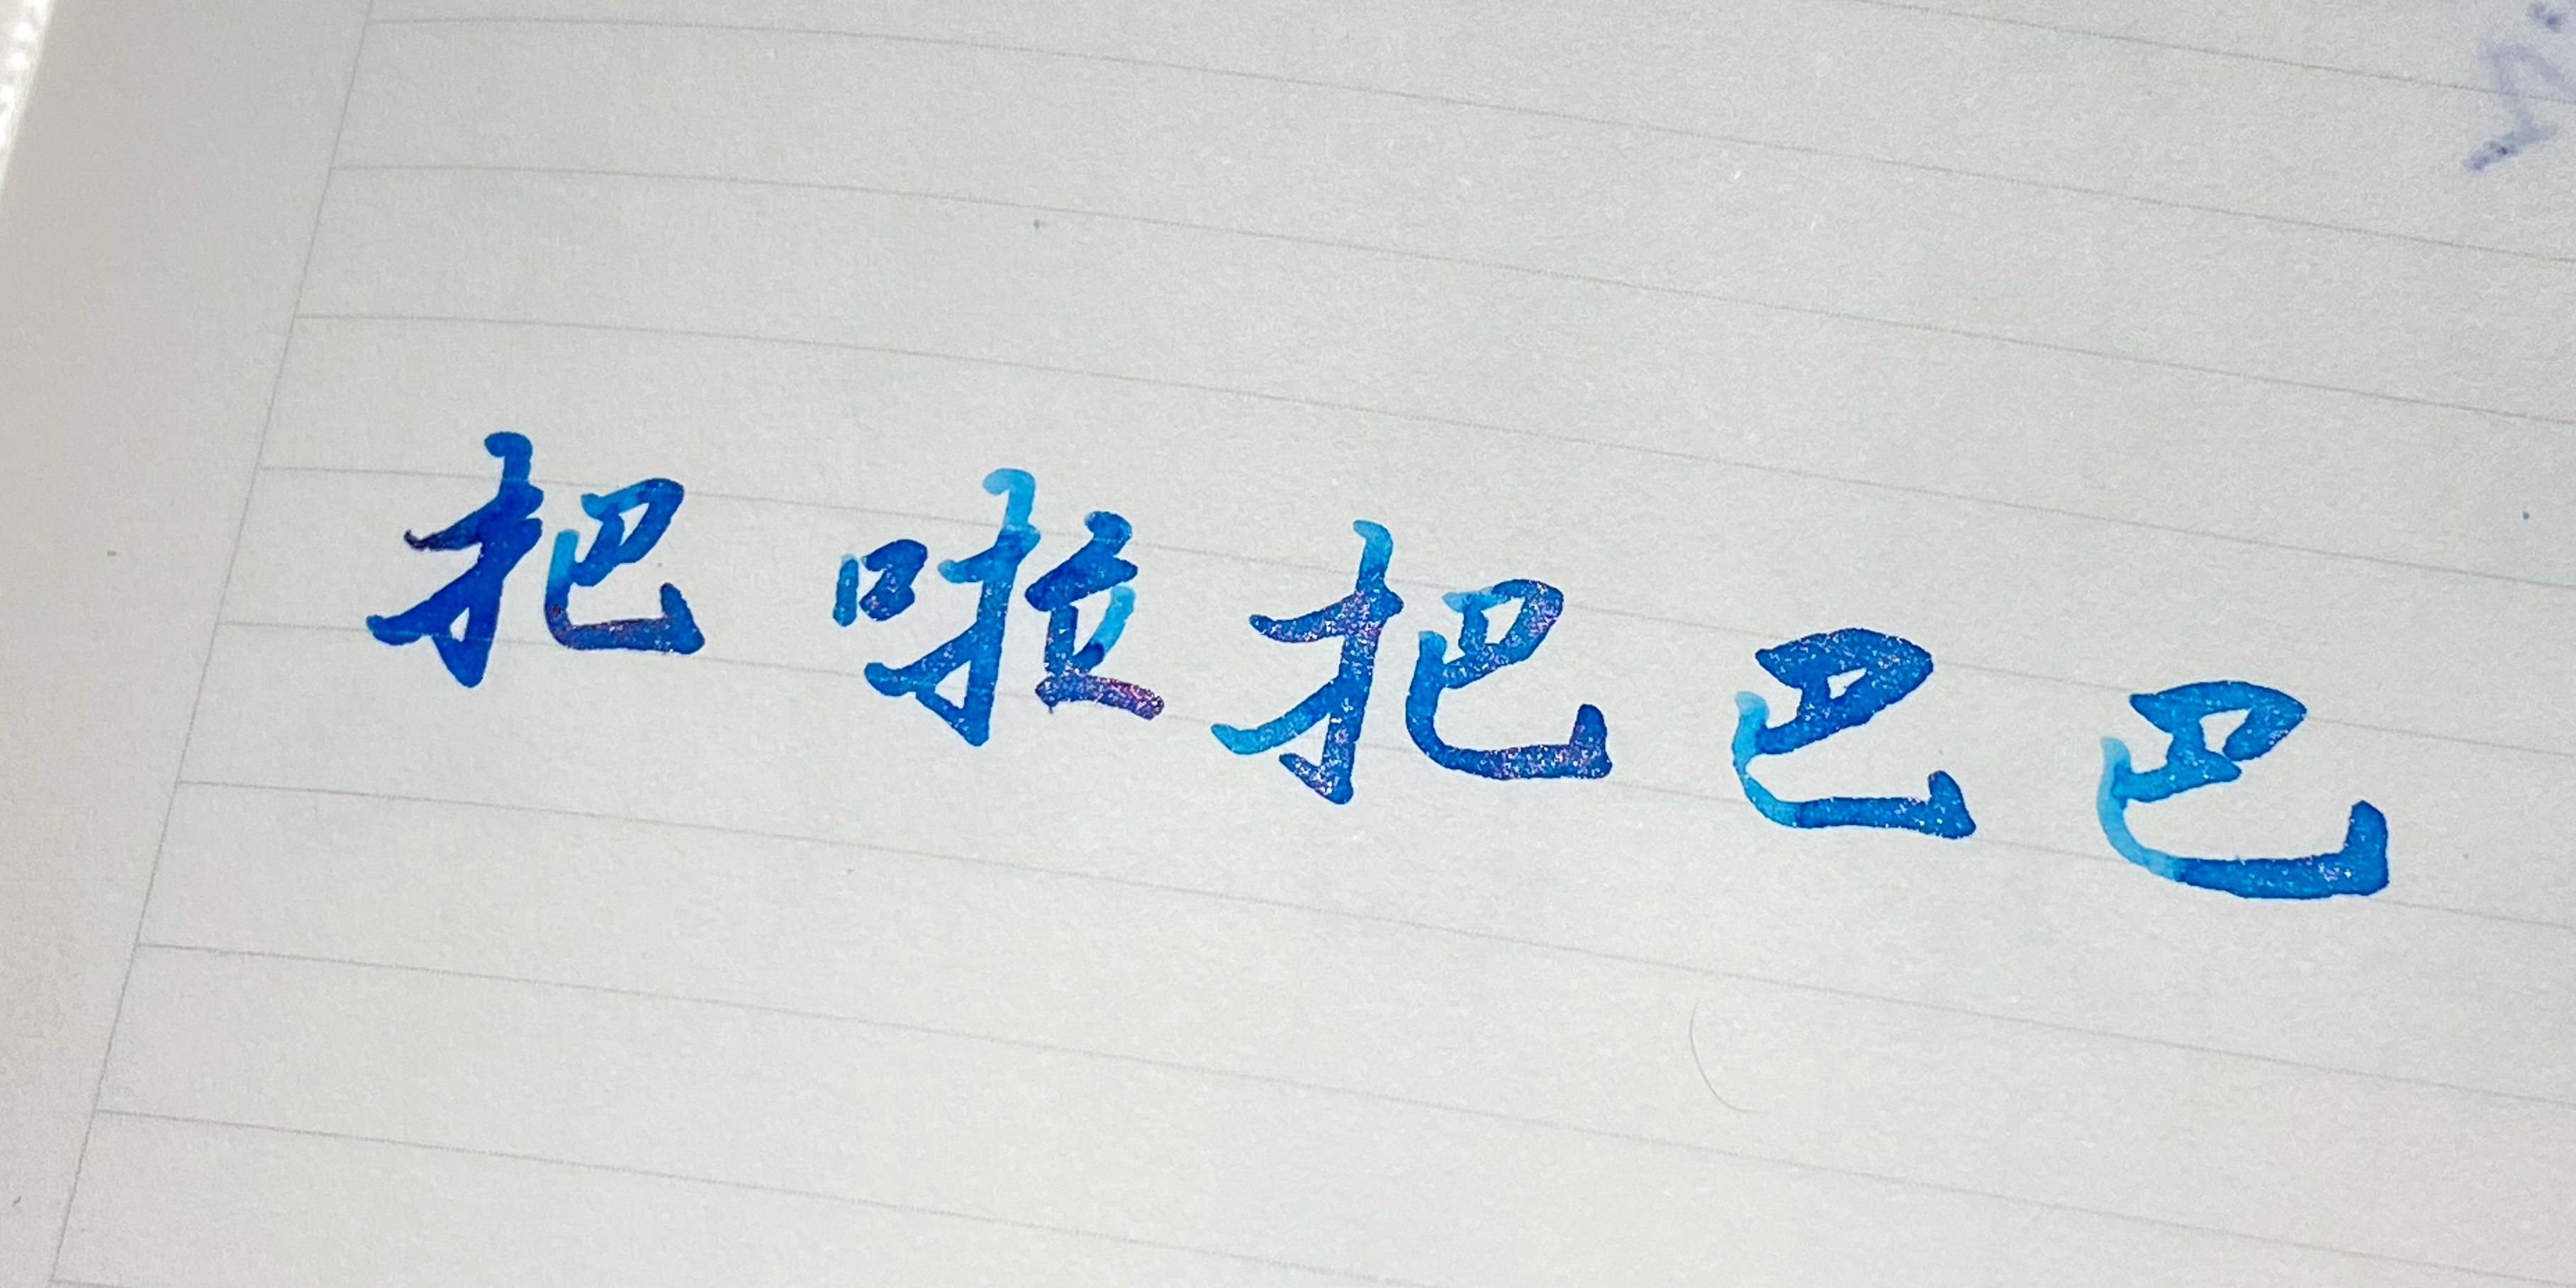 把啦把巴巴